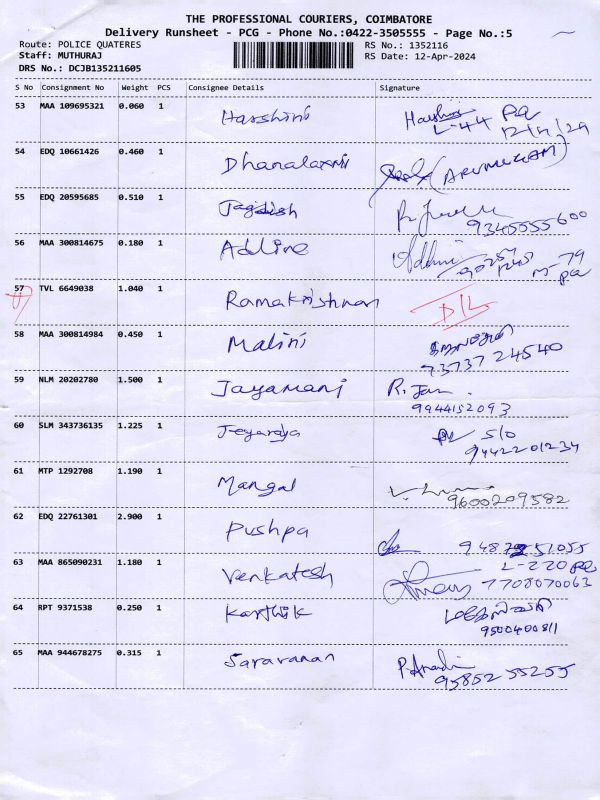 THE PROFESSIONAL COURIERS, COIMBATORE
Delivery Runsheet - PCG - Phone No.:0422-3505555 - Page No.:5
Route: POLICE QUATERES RS No.: 1352116
Staff: MUTHURAJ RS Date: 12-Apr-2024
DRS No.: DCJB135211605
S No Consignment No Weight PCS Consignee Details Signature
53 MAA 109695321 0.060 1 Harshini L-44
54 EDQ 10661426 0.460 1 Dhanalaxmi (ARUMUGAM)
55 EDQ 20595685 0.510 1 Jagdish
9345555600
56 MAA 300814675 0.180 1 Adline
57 TVL 6649038 1.040 1 Ramakrishnan D/L
58 MAA 300814984 0.450 1 Malini
73737 24540
59 NLM 20202780 1.500 1 Jayamani R. Jam
9944152093
60 SLM 343736135 1.225 1 Jeyandya S/O
9442201234
61 MTP 1292708 1.190 1 Mangal
9600209582
62 EDQ 22761301 2.900 1 Pushpa
63 MAA 865090231 1.180 1 Venkatesh L-220
7708070063
64 RPT 9371538 0.250 1 Karthik
9500400811
65 MAA 944678275 0.315 1 Saravanan
95852 55255